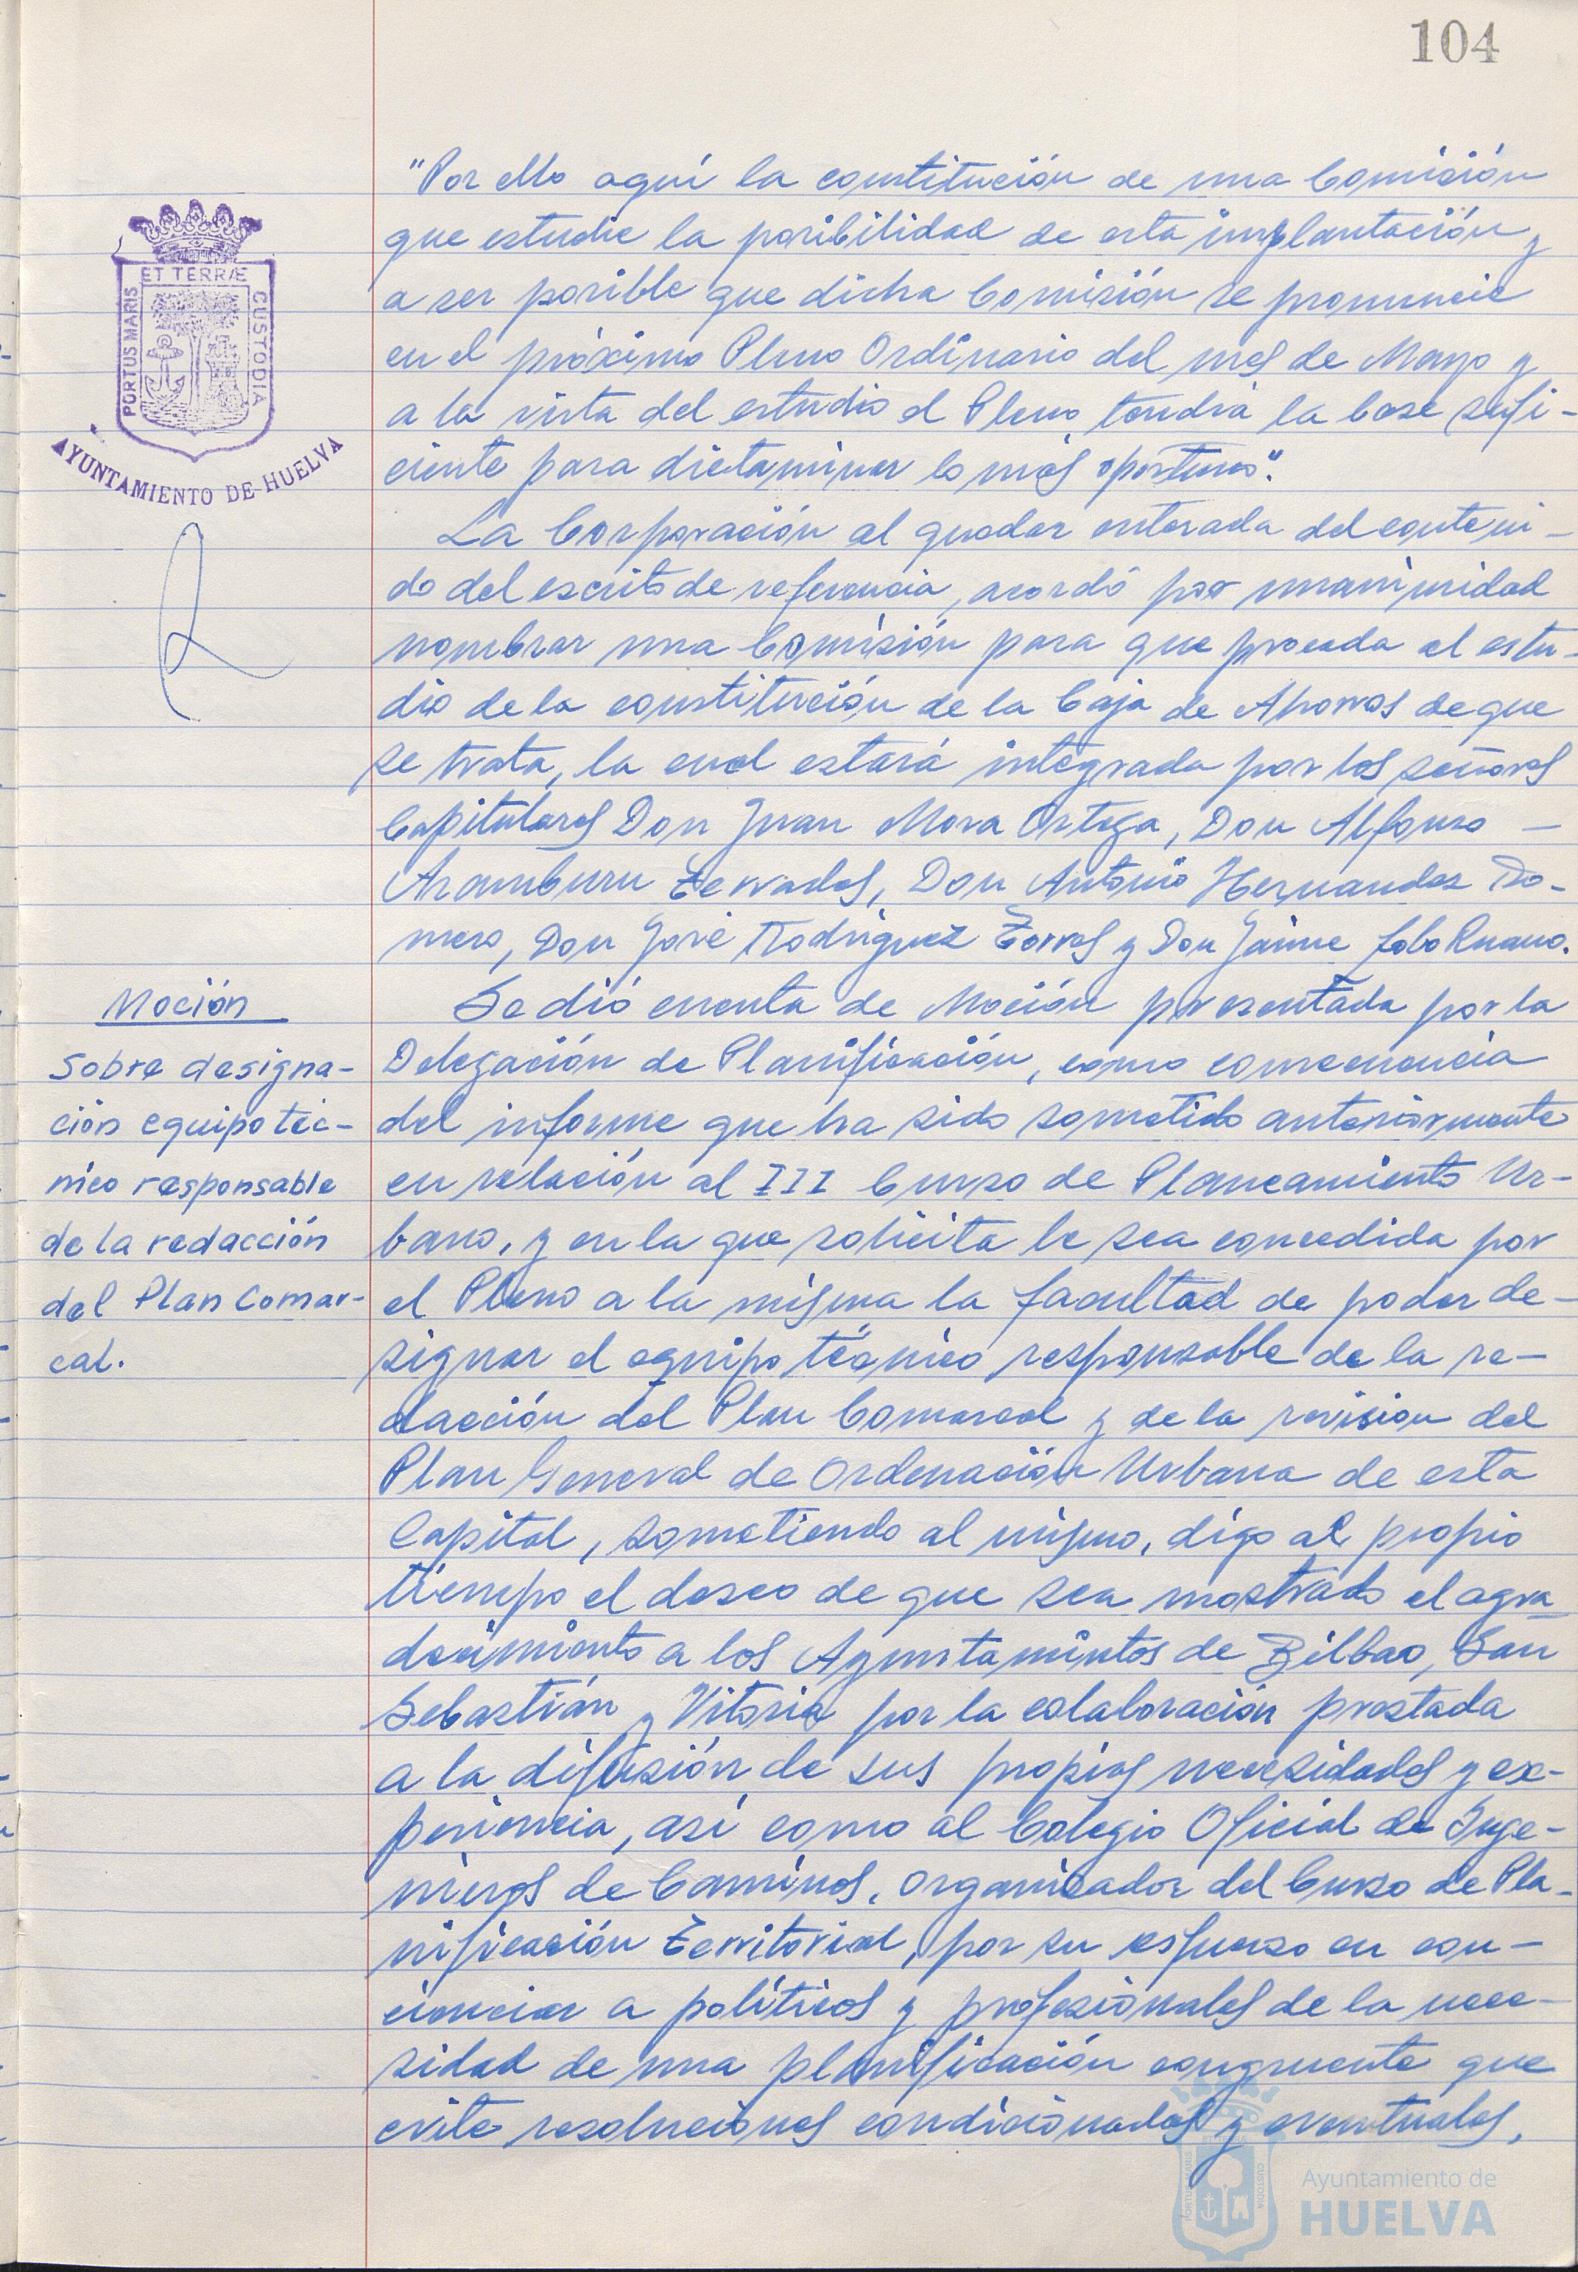 104
"Por ello aquí la constitución de una Comisión
que estudie la posibilidad de esta implantación y
a ser posible que dicha Comisión se pronuncie
en el próximo Pleno Ordinario del mes de Mayo y
a la vista del estudio el Pleno tendrá la base sufi-
ciente para dictaminar lo más oportuno".
La Corporación al quedar enterada del conteni-
do del escrito de referencia, acordó por unanimidad
nombrar una Comisión para que proceda al estu-
dio de la constitución de la Caja de Ahorros de que
se trata, la cual estará integrada por los señores
Capitulares Don Juan Mora Ortega, Don Alfonso -
Aramburu Terrades, Don Antonio Hernandez Ro-
mero, Don José Rodriguez Torres y Don Jaime Lobo Ruano.
Moción
Sobre designa-
ción equipo téc-
nico responsable
de la redacción
del Plan Comar-
cal.
Se dió cuenta de Moción presentada por la
Delegación de Planificación, como consecuencia
del informe que ha sido sometido anteriormente
en relación al III Curso de Planeamiento Ur-
bano, y en la que solicita le sea concedida por
el Pleno a la misma la facultad de poder de-
signar el equipo técnico responsable de la re-
dacción del Plan Comarcal y de la revision del
Plan General de Ordenación Urbana de esta
Capital, sometiendo al mismo, digo al propio
tiempo el deseo de que sea mostrado el agra-
decimiento a los Ayuntamintos de Bilbao, San
Sebastián y Vitoria por la colaboración prestada
a la difusión de sus propias necesidades y ex-
periencia, así como al Colegio Oficial de Inge-
nieros de Caminos, organizador del Curso de Pla-
nificación Territorial, por su esfuerzo en con-
cienciar a políticos y profesionales de la nece-
sidad de una planificación congruente que
evite resoluciones condicionadas y eventuales,
PORTUS MARIS ET TERRÆ CUSTODIA
AYUNTAMIENTO DE HUELVA
Ayuntamiento de
HUELVA